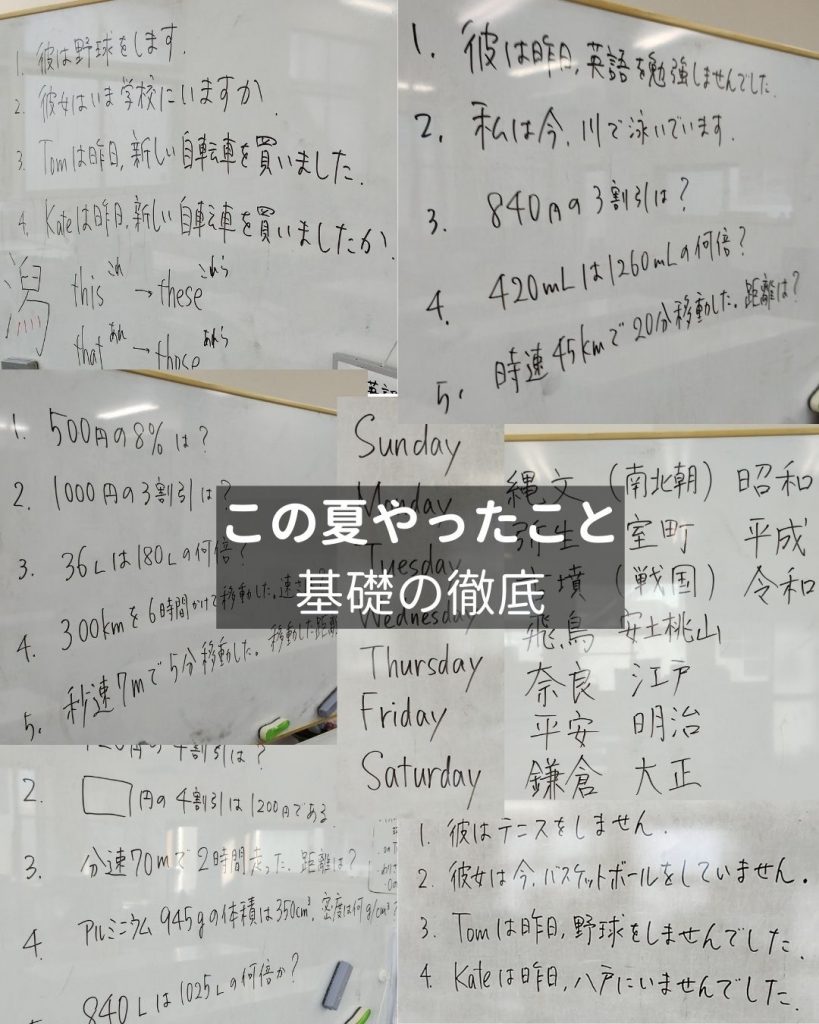 1. 彼は野球をします.
2. 彼女はいま学校にいますか.
3. Tomは昨日,新しい自転車を買いました.
4. Kateは昨日,新しい自転車を買いましたか.
これ これら
this → these
あれ あれら
that → those
1. 彼は昨日,英語を勉強しませんでした.
2. 私は今,川で泳いでいます.
3. 840円の3割引は?
4. 420mLは1260mLの何倍?
5. 時速45kmで20分移動した.距離は?
1. 500円の8%は?
2. 1000円の3割引は?
3. 36Lは180Lの何倍?
4. 300kmを6時間かけて移動した.速さ
5. 秒速7mで5分移動した.移動した距離
英語
Sunday
Monday
Tuesday
Wednesday
Thursday
Friday
Saturday
縄文 (南北朝) 昭和
弥生 室町 平成
古墳 (戦国) 令和
飛鳥 安土桃山
奈良 江戸
平安 明治
鎌倉 大正
この夏やったこと
基礎の徹底
円の4割引は?
2. □円の4割引は1200円である.
3. 分速70mで2時間走った.距離は?
4. アルミニウム945gの体積は350cm³.密度は何g/cm³?
840Lは1025Lの何倍か?
1. 彼はテニスをしません.
2. 彼女は今,バスケットボールをしていません.
3. Tomは昨日,野球をしませんでした.
4. Kateは昨日,八戸にいませんでした.